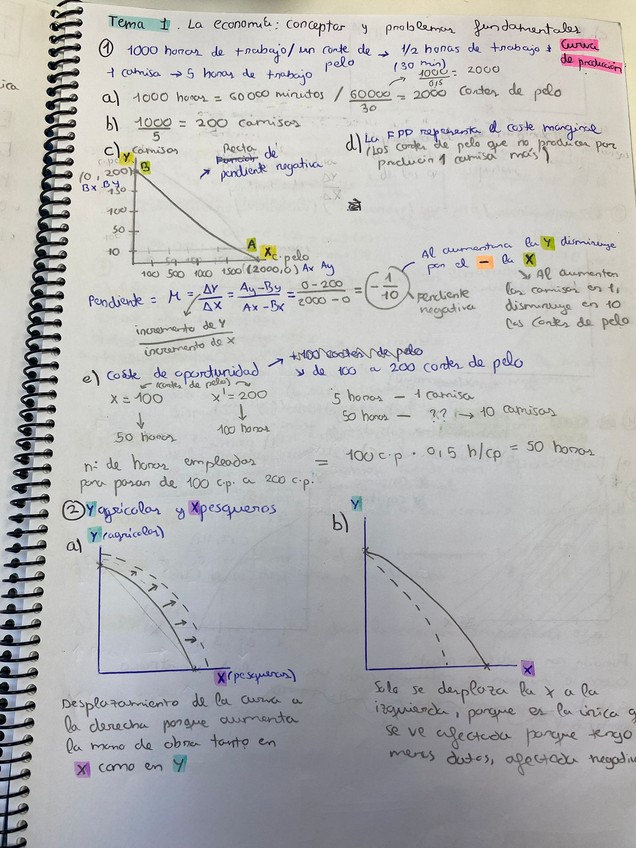 Tema 1. La economía: conceptos y problemas fundamentales
① 1000 horas de trabajo/ un corte de pelo → 1/2 horas de trabajo * Curva de producción
(30 min)
1 camisa → 5 horas de trabajo 1000/0,5 = 2000
a) 1000 horas = 60000 minutos / 60000/30 = 2000 cortes de pelo
b) 1000/5 = 200 camisas
c) Y camisas
Recta de pendiente negativa
d) La FPP representa el coste marginal
(Los cortes de pelo que no produzco por
producir 1 camisa más)
(0, 200) B
Bx By
150
100
50
10
A
X c. pelo
100 500 1000 1500 (2000,0) Ax Ay
Pendiente = M = ΔY/ΔX = Ay-By/Ax-Bx = 0-200/2000-0 = -1/10
incremento de Y
incremento de X
pendiente negativa
Al aumentar la Y disminuye
por el - la X
↘ Al aumentar
las camisas en 1,
disminuye en 10
los cortes de pelo
e) Coste de oportunidad → +100 cortes de pelo
↘ de 100 a 200 cortes de pelo
(cortes de pelo)
x = 100 x' = 200
50 horas 100 horas
5 horas — 1 camisa
50 horas — ?? → 10 camisas
nº de horas empleadas
para pasar de 100 c.p. a 200 c.p. = 100 c.p · 0,5 h/cp = 50 horas
② Y agrícolas y X pesqueros
a) Y (agrícolas)
X (pesqueros)
Desplazamiento de la curva a
la derecha porque aumenta
la mano de obra tanto en
X como en Y
b) Y
X
Solo se desplaza la X a la
izquierda, porque es la única q
se ve afectada porque tengo
menos datos, afectada negativ